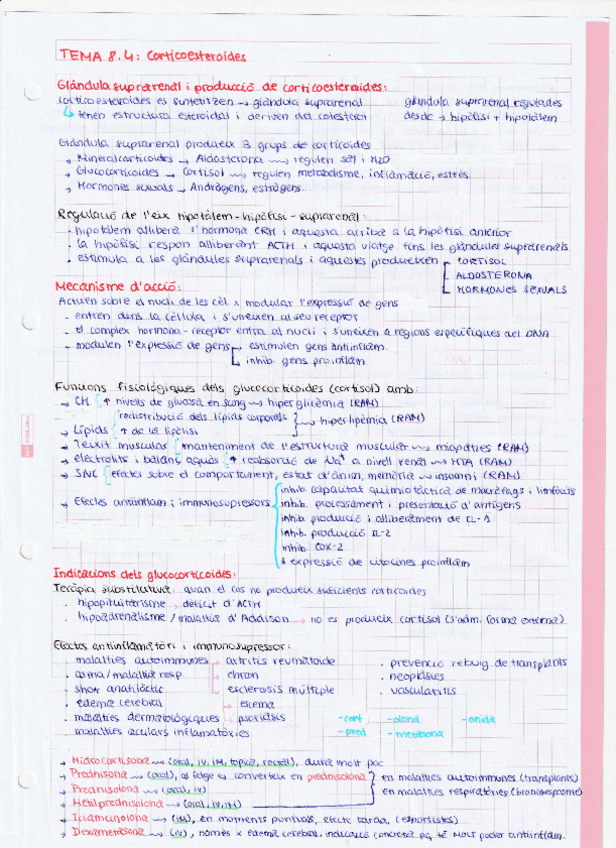 TEMA 8.4: Corticoesteroides
Glàndula suprarenal i producció de corticoesteroides:
corticoesteroides es sintetitzen → glàndula suprarenal
↳ tenen estructura esteroidal i deriven del colesterol
glàndula suprarenal regulades
desde → hipòfisi + hipotàlem
Glàndula suprarenal produeix 3 grups de corticoides
→ Mineralcorticoides → Aldosterona ⟿ regulen sal i H2O
→ Glucocorticoides → Cortisol ⟿ regulen metabolisme, inflamació, estrés
→ Hormones sexuals → Andrògens, estrògens...
Regulació de l'eix hipotàlem-hipòfisi-suprarenal:
· hipotàlem allibera l'hormona CRH i aquesta arriba a la hipòfisi anterior
· la hipòfisi respon alliberant ACTH i aquesta viatge fins les glàndules suprarenals
· estimula a les glàndules suprarenals i aquestes produeixen
CORTISOL
ALDOSTERONA
HORMONES SEXUALS
Mecanisme d'acció:
Actuen sobre el nucli de les cèl x modular l'expressió de gens
- entren dins la cèl·lula i s'uneixen al seu receptor
- el complex hormona-receptor entra al nucli i s'uneixen a regions específiques del DNA
- modulen l'expressió de gens
estimulen gens antiinflam.
inhib. gens proinflam.
Funcions fisiològiques dels glucocorticoides (cortisol) amb:
→ CH { ↑ nivells de glucosa en sang ⟿ hiperglicèmia (RAM)
→ Lípids
redistribució dels lípids corporals
↑ de la lipòlisi
⟿ hiperlipèmia (RAM)
→ Teixit muscular { manteniment de l'estructura muscular ⟿ miopaties (RAM)
→ electrolits i balanç aquós { ↑ reabsorció de Na+ a nivell renal ⟿ HTA (RAM)
→ SNC { efectes sobre el comportament, estat d'ànim, memòria ⟿ insomni (RAM)
→ Efectes antiinflam i immunosupressors
inhib capacitat quimiotàctica de macròfags i limfòcits
inhib. processament i presentació d'antígens
inhib. producció i alliberament de IL-1
inhib. producció IL-2
inhib. COX-2
↓ expressió de citocines proinflam
Indicacions dels glucocorticoides:
Teràpia substitutiva: quan el cos no produeix suficients corticoides
· hipopituïtarisme → dèficit d'ACTH
· hipoadrenalisme / malaltia d'Addison → no es produeix cortisol (s'adm. forma externa)
Efectes antiinflamatòri i immunosupressor:
· malalties autoimmunes
artritis reumatoide
chron
esclerosis múltiple
· asma/malaltia resp
· shock anafilàctic
· edema cerebral
· malalties dermatològiques
èczema
psoriasis
· malalties oculars inflamatòries
· prevenció rebuig de transplants
· neoplàsies
· vasculitis
-cort
-pred
-olona
-metasona
-onida
→ Hidrocortisona ⟿ (oral, iv, im, tòpica, rectal), dura molt poc
→ Prednisona ⟿ (oral), al fetge es converteix en prednisolona
→ Prednisolona ⟿ (oral, iv)
→ Metilprednisolona ⟿ (oral, iv, IM)
en malalties autoimmunes (transplants)
en malalties respiratòries (broncoespasme)
→ Triamcinolona ⟿ (IM), en moments puntuals, efecte tardà, (esportistes)
→ Dexametasona ⟿ (iv), només x edema cerebral, indicació concreta pq té molt poder antiinflam.